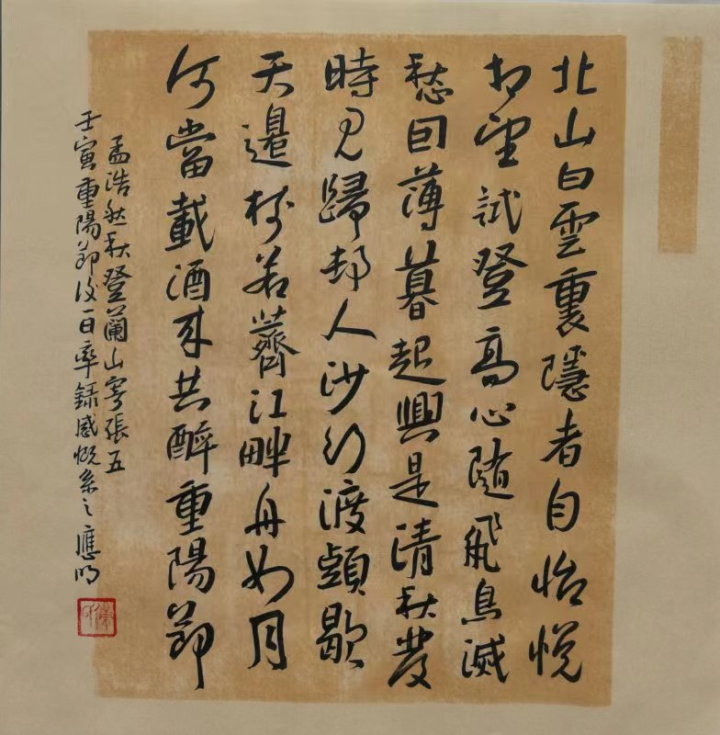 北山白雲裏隱者自怡悅
相望試登高心隨飛鳥滅
愁因薄暮起興是清秋發
時見歸邨人沙行渡頭歇
天邊樹若薺江畔舟如月
何當載酒來共醉重陽節
孟浩然秋登蘭山寄張五
壬寅重陽節後一日率錄感慨系之應明